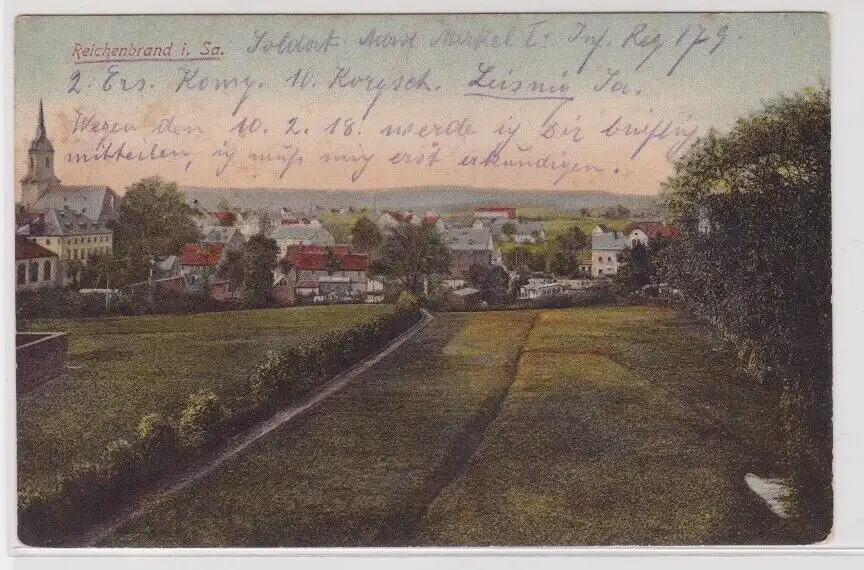 Reichenbrand i. Sa.
Soldat Kurt Merkel I. Inf. Reg 179.
2. Ers. Komp. 10. Korpsch. Leisnig Sa.
Wegen den 10. 2. 18. werde ich Dir brieflich
mitteilen, ich muß mich erst erkundigen.